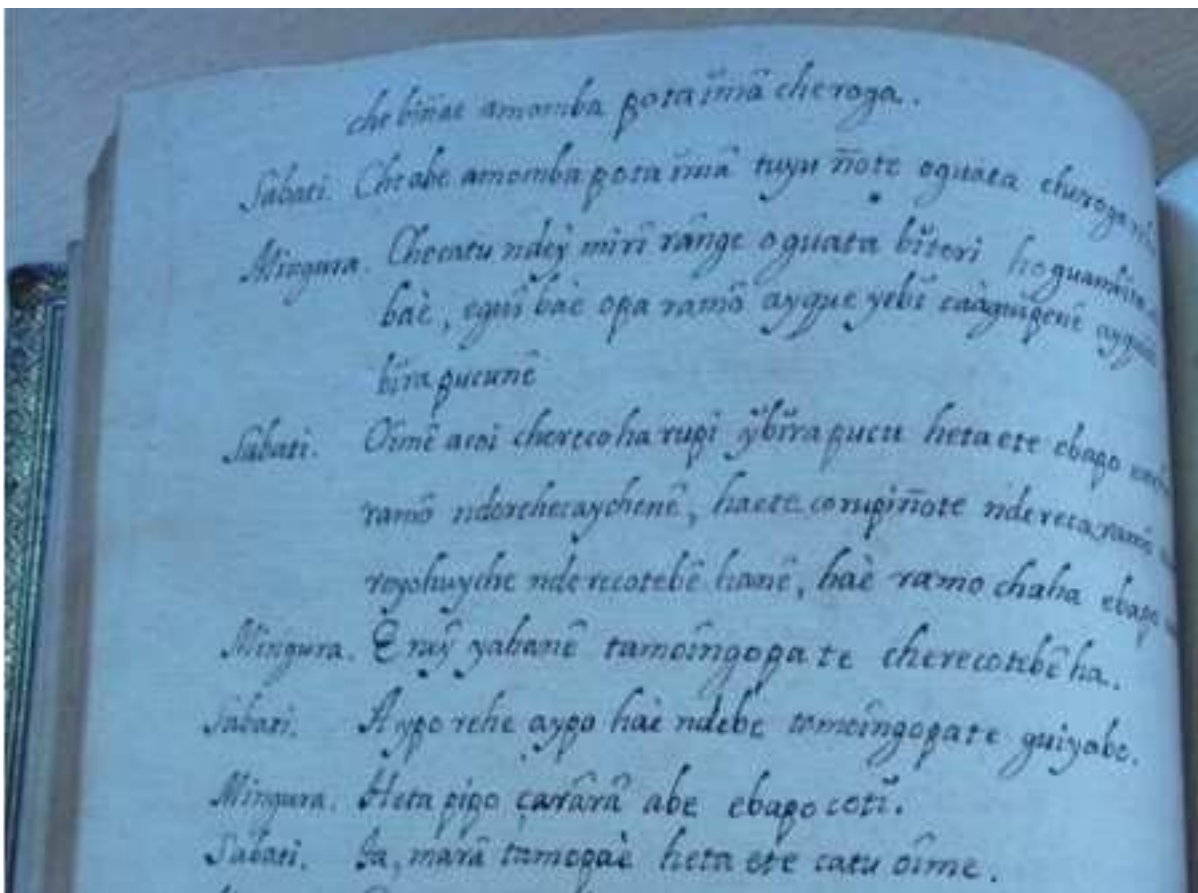 che biñae amomba pota ĭmâ cheroga.
Sabati. Cheabe amomba pota ĭmâ tuyu ñote oguata cheroga
Mingura. Checatu ndeỹ mirî rânge oguata bĭteri
baè, eguĭ baè opa ramô ayque yebĭ caàguĭpenê
bĭra pucunê
Sabati. Oîmê acoi cherecoha rupi ỹbĭra pucu heta ete ebapo
ramô ndorehecaychenê, haete corupiñote ndereca ramô
royohuyche nderecotebê hanê, haè ramo chaha ebapo
Mingura. E neỹ yabanê tamoîngopa te cherecotebê ha.
Sabati. Aypo rehe aypo haè ndebe tomoîngopate guiyabo.
Mingura. Heta pipo çarârâ abe ebapo cotĭ.
Sabati. Ia, marâ tamopaè heta ete catu oîme.